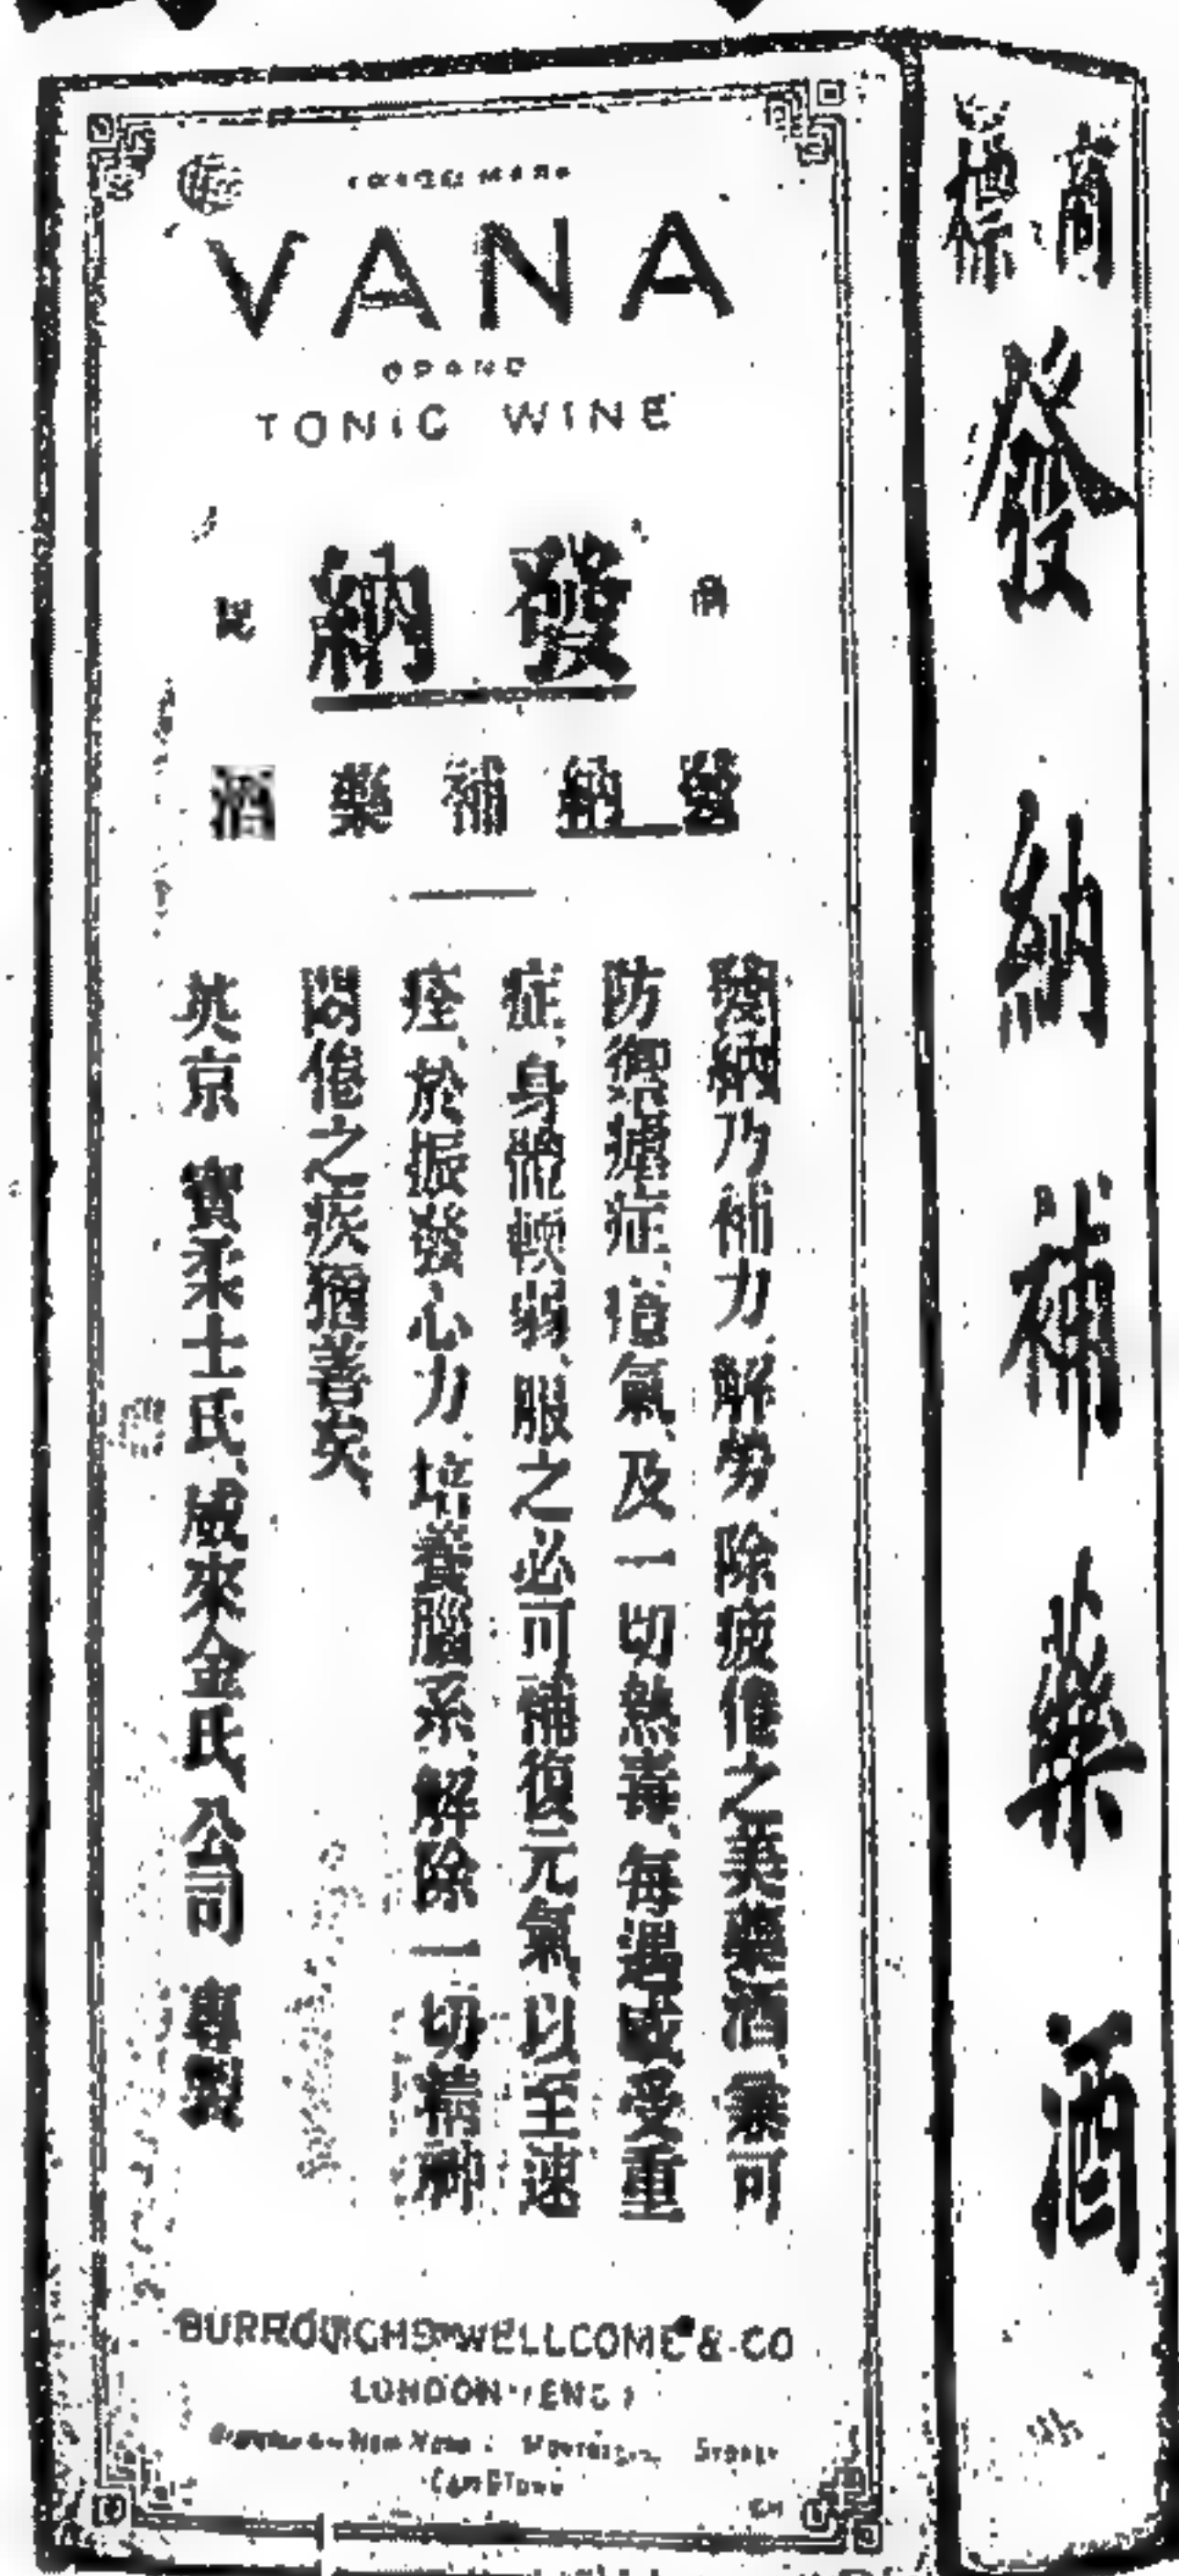 TRADE MARK
VANA
BRAND
TONIC WINE
商 發納 標
發納補藥酒
發納乃補力、解勞、除疲倦之美藥酒、兼可
防禦瘧症、瘴氣、及一切熱毒、每遇感受重
症、身體軟弱、服之必可補復元氣、以至速
痊、於振發心力、培養腦系、解除一切精神
悶倦之疾猶善矣、
英京 寶柔士氏、威來金氏 公司 專製
BURROUGHS WELLCOME & CO
LONDON (ENG.)
NEW YORK MONTREAL SYDNEY
CAPE TOWN
商標
發納補藥酒